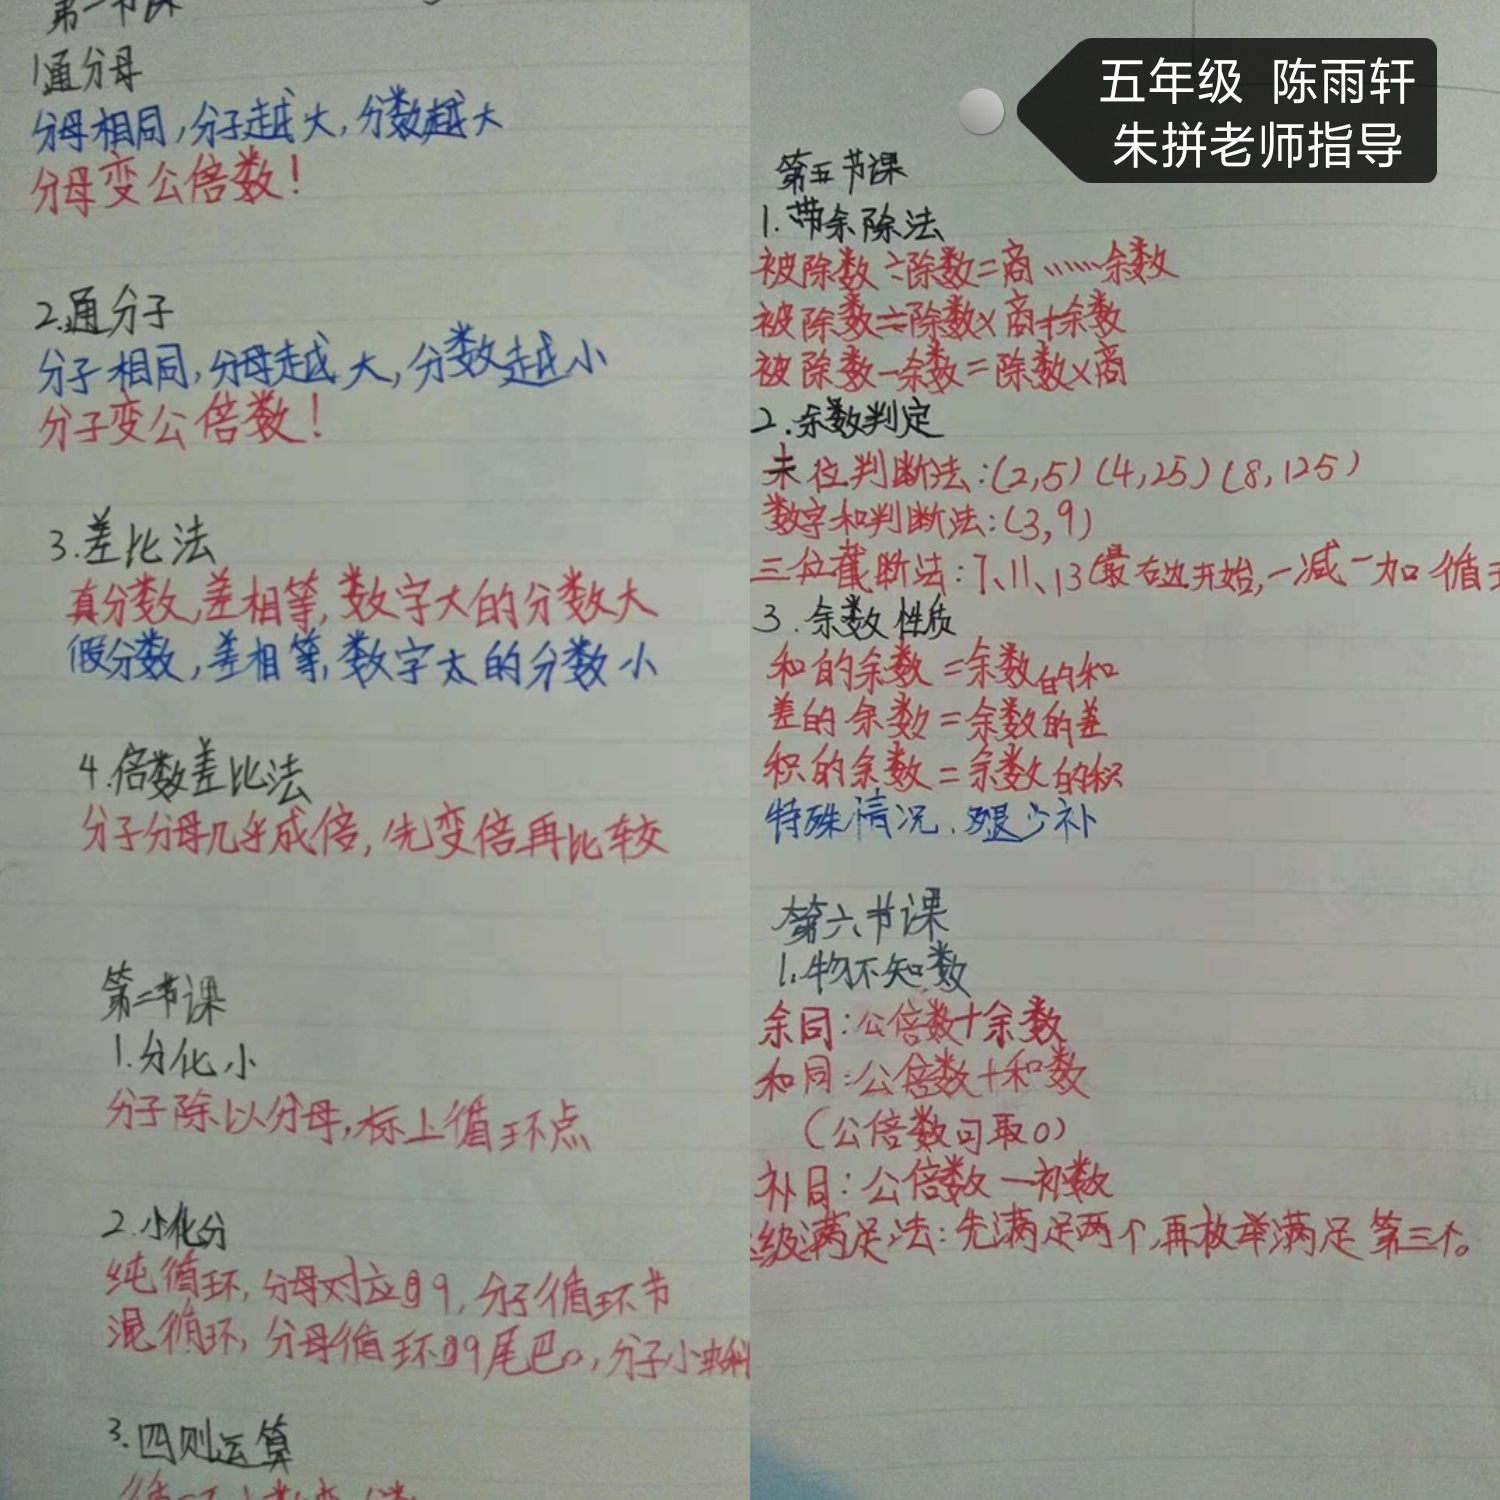 第一节课
1通分母
分母相同,分子越大,分数越大
分母变公倍数!
2.通分子
分子相同,分母越大,分数越小
分子变公倍数!
3.差比法
真分数,差相等,数字大的分数大
假分数,差相等,数字大的分数小
4.倍数差比法
分子分母几乎成倍,先变倍再比较
第二节课
1.分化小
分子除以分母,标上循环点
2.小化分
纯循环,分母对应9,分子循环节
混循环,分母循环9尾巴0,分子小
3.四则运算
五年级 陈雨轩
朱拼老师指导
第五节课
1.带余除法
被除数÷除数=商……余数
被除数=除数×商+余数
被除数-余数=除数×商
2.余数判定
末位判断法:(2,5)(4,25)(8,125)
数字和判断法:(3,9)
三位截断法:7、11、13(最右边开始,一减一加循
3.余数性质
和的余数=余数的和
差的余数=余数的差
积的余数=余数的积
特殊情况,多退少补
第六节课
1.物不知数
余同:公倍数+余数
和同:公倍数+和数
(公倍数可取0)
补同:公倍数-补数
级满足法:先满足两个,再枚举满足第三个。